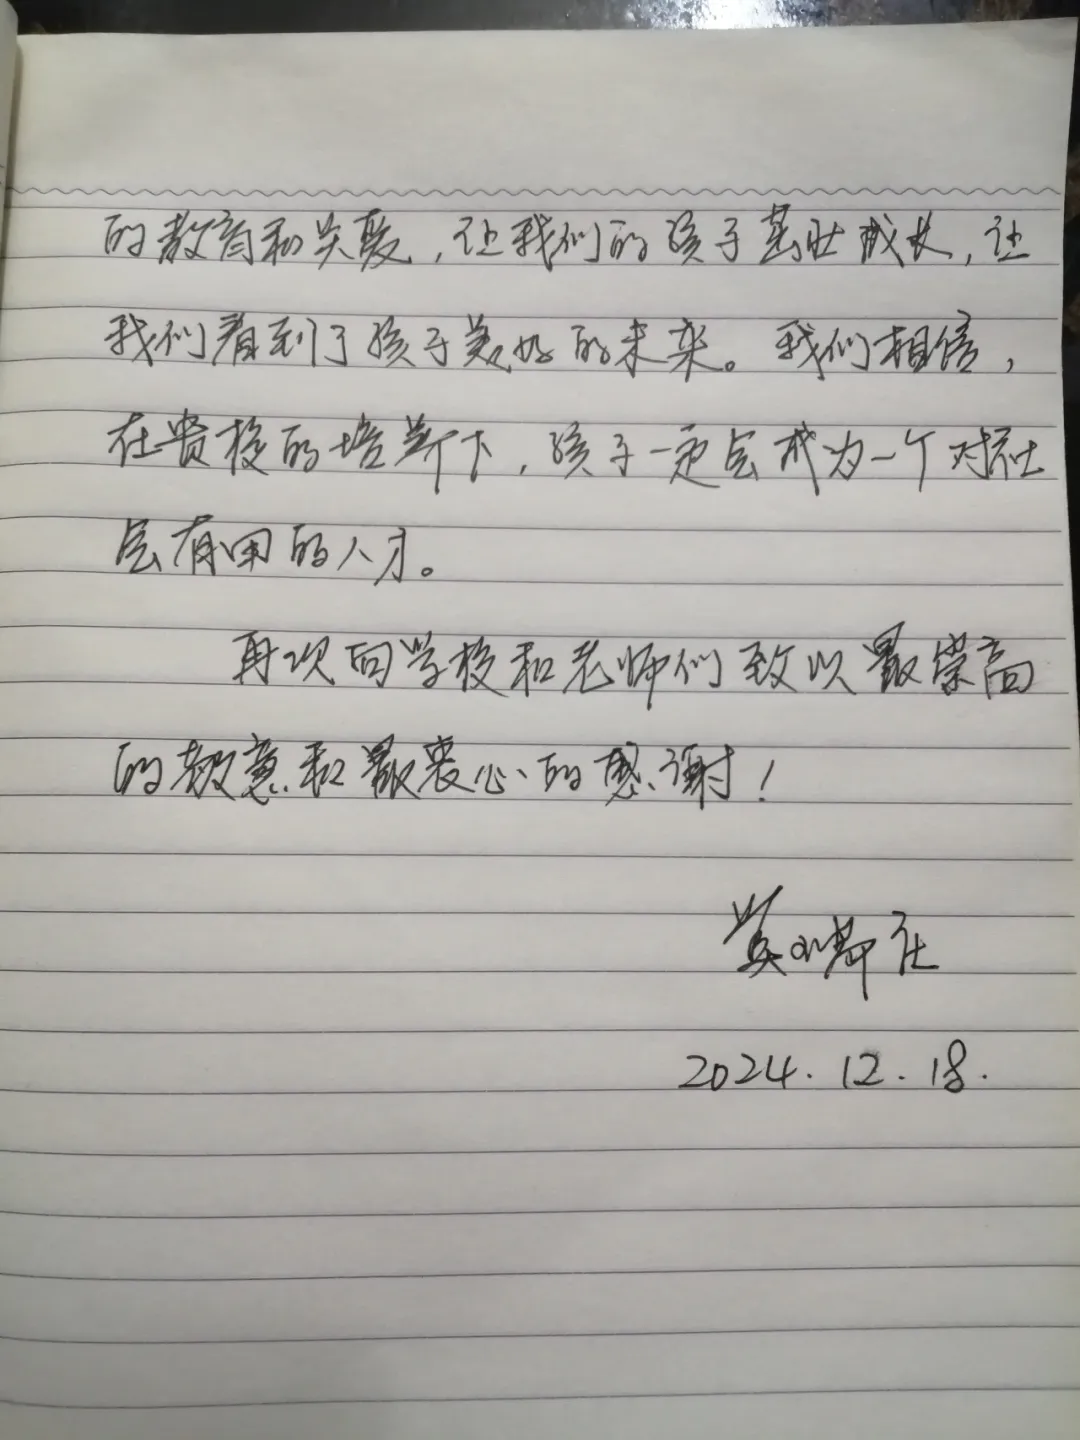 的教育和关爱，让我们的孩子茁壮成长，让
我们看到了孩子美好的未来。我们相信，
在贵校的培养下，孩子一定会成为一个对社
会有用的人才。
再次向学校和老师们致以最崇高
的敬意和最衷心的感谢！
2024.12.18.